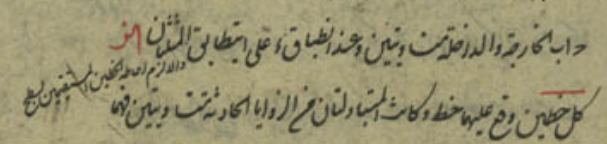 د ا ب الخارجة والداخلة متساويتين وعند انطباق ء على ا يتطابق المثلثان
والا لزم احاطة الخطين المستقيمين بسطح
كل خطين وقع عليهما خط وكانت المتبادلتان من الزوايا الحادثة متساويتين فهما